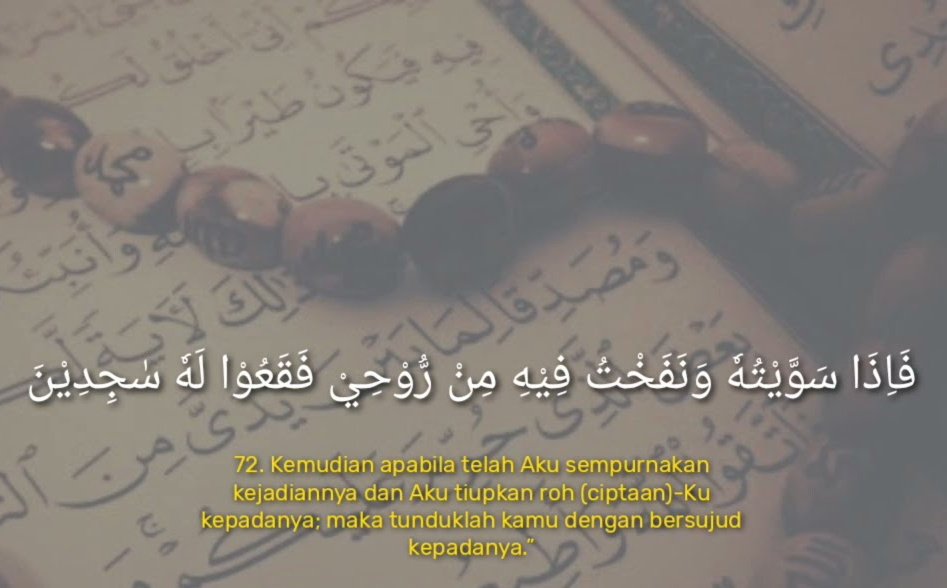 أَنِّي أَخْلُقُ لَكُم
فِيهِ فَيَكُونُ طَيْرًا
وَأُحْيِ الْمَوْتَىٰ
محمد
لَآيَةً
وَمُصَدِّقًا لِمَا بَيْنَ يَدَيَّ مِنَ
فَاِذَا سَوَّيْتُهٗ وَنَفَخْتُ فِيْهِ مِنْ رُّوْحِيْ فَقَعُوْا لَهٗ سٰجِدِيْنَ
72. Kemudian apabila telah Aku sempurnakan
kejadiannya dan Aku tiupkan roh (ciptaan)-Ku
kepadanya; maka tunduklah kamu dengan bersujud
kepadanya.”